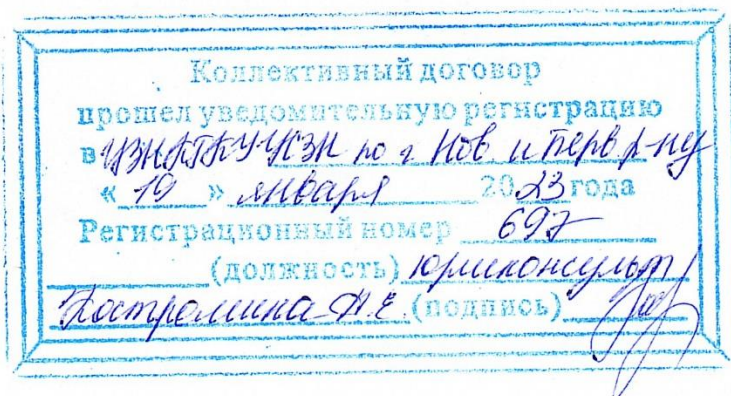 Коллективный договор
прошел уведомительную регистрацию
в УЗН ГКУ УСЗН по г Нов. и Перв. р-ну
« 19 » января 2023 года
Регистрационный номер 697
(должность) юрисконсульт
Костромина Н.Е. (подпись)